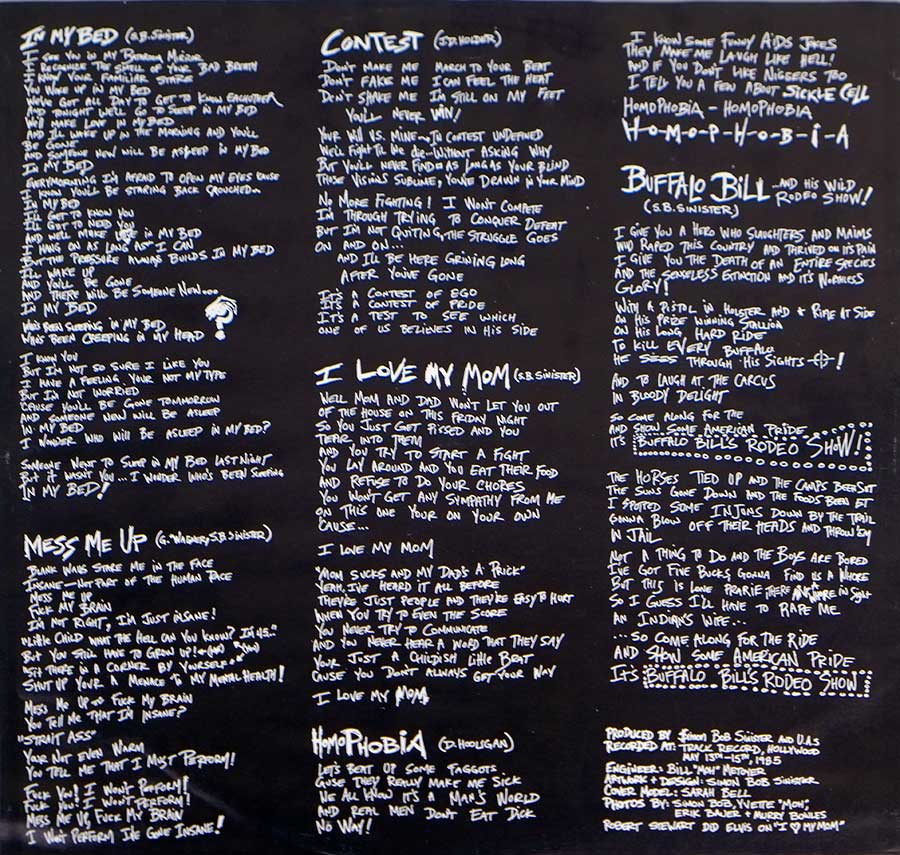 IN MY BED (S.B. SINISTER)
I SEE YOU IN MY BATHROOM MIRROR
I RECOGNIZE THE SMELL OF YOUR BAD BREATH
I KNOW YOUR FAMILIAR STARE
YOU WOKE UP IN MY BED
WE'VE GOT ALL DAY TO GET TO KNOW EACHOTHER
AND TONIGHT WE'LL GO TO SLEEP IN MY BED
WE'LL MAKE LOVE IN MY BED
AND I'LL WAKE UP IN THE MORNING AND YOU'LL
BE GONE
AND SOMEONE NEW WILL BE ASLEEP IN MY BED
IN MY BED
EVERYMORNING I'M AFRAID TO OPEN MY EYES CAUSE
I KNOW YOU'LL BE STARING BACK GROUCHED...
IN MY BED
I'LL GET TO KNOW YOU
I'LL GET TO NEED YOU
AND WE'LL MAKE LOVE IN MY BED
I HANG ON AS LONG AS I CAN
BUT THE PRESSURE ALWAYS BUILDS IN MY BED
I'LL WAKE UP
AND YOU'LL BE GONE
AND THERE WILL BE SOMEONE NEW...
IN MY BED
WHO'S BEEN SLEEPING IN MY BED
WHO'S BEEN CREEPING IN MY HEAD ?
I KNOW YOU
BUT I'M NOT SO SURE I LIKE YOU
I HAVE A FEELING YOUR NOT MY TYPE
BUT I'M NOT WORRIED
CAUSE YOU'LL BE GONE TOMMORROW
AND SOMEONE NEW WILL BE ASLEEP
IN MY BED
I WONDER WHO WILL BE ASLEEP IN MY BED?
SOMEONE WENT TO SLEEP IN MY BED LAST NIGHT
BUT IT WASN'T YOU... I WONDER WHO'S BEEN SLEEPING
IN MY BED!
MESS ME UP (G. WAGNER, S.B. SINISTER)
BLANK WALLS STARE ME IN THE FACE
INSANE—NOT PART OF THE HUMAN RACE
MESS ME UP
FUCK MY BRAIN
I'M NOT RIGHT, I'M JUST INSANE!
"LITTLE CHILD WHAT THE HELL CAN YOU KNOW? I'M 45.."
BUT YOU STILL HAVE TO GROW UP!
SIT THERE IN A CORNER BY YOURSELF
SHUT UP YOUR A MENACE TO MY MENTAL HEALTH!
MESS ME UP FUCK MY BRAIN
YOU TELL ME THAT I'M INSANE?
"STRAIT ASS"
YOUR NOT EVEN WARM
YOU TELL ME THAT I MUST PERFORM!
FUCK YOU! I WON'T PERFORM!
FUCK YOU! I WON'T PERFORM!
MESS ME UP, FUCK MY BRAIN
I WON'T PERFORM I'VE GONE INSANE!
CONTEST (J.D. HOLDER)
DON'T MAKE ME MARCH TO YOUR BEAT
DON'T FAKE ME I CAN FEEL THE HEAT
DON'T SHAKE ME I'M STILL ON MY FEET
YOU'LL NEVER WIN!
YOUR WILL VS. MINE—TO CONTEST UNDEFINED
WE'LL FIGHT TIL WE DIE—WITHOUT ASKING WHY
BUT YOU'LL NEVER FIND AS LONG AS YOUR BLIND
THOSE VISIONS SUBLIME, YOU'VE DRAWN IN YOUR MIND
NO MORE FIGHTING! I WON'T COMPETE
I'M THROUGH TRYING TO CONQUER DEFEAT
BUT I'M NOT QUITING, THE STRUGGLE GOES
ON AND ON...
AND I'LL BE HERE GRINING LONG
AFTER YOU'VE GONE
IT'S A CONTEST OF EGO
IT'S A CONTEST OF PRIDE
IT'S A TEST TO SEE WHICH
ONE OF US BELIEVES IN HIS SIDE
I LOVE MY MOM (S.B. SINISTER)
WELL MOM AND DAD WON'T LET YOU OUT
OF THE HOUSE ON THIS FRIDAY NIGHT
SO YOU JUST GET PISSED AND YOU
TEAR INTO THEM
AND YOU TRY TO START A FIGHT
YOU LAY AROUND AND YOU EAT THEIR FOOD
AND REFUSE TO DO YOUR CHORES
YOU WON'T GET ANY SYMPATHY FROM ME
ON THIS ONE YOUR ON YOUR OWN
CAUSE...
I LOVE MY MOM
"MOM SUCKS AND MY DAD'S A PRICK"
YEAH, I'VE HEARD IT ALL BEFORE
THEY'RE JUST PEOPLE AND THEY'RE EASY TO HURT
WHEN YOU TRY TO EVEN THE SCORE
YOU NEVER TRY TO COMMUNICATE
AND YOU NEVER HEAR A WORD THAT THEY SAY
YOUR JUST A CHILDISH LITTLE BRAT
CAUSE YOU DON'T ALWAYS GET YOUR WAY
I LOVE MY MOM
HOMOPHOBIA (D. HOOLIGAN)
LET'S BEAT UP SOME FAGGOTS
CAUSE THEY REALLY MAKE ME SICK
WE ALL KNOW IT'S A MAN'S WORLD
AND REAL MEN DON'T EAT DICK
NO WAY!
I KNOW SOME FUNNY AIDS JOKES
THEY MAKE ME LAUGH LIKE HELL!
AND IF YOU DON'T LIKE NIGGERS TOO
I TELL YOU A FEW ABOUT SICKLE CELL
HOMOPHOBIA - HOMOPHOBIA
H-O-M-O-P-H-O-B-I-A
BUFFALO BILL AND HIS WILD
RODEO SHOW!
(S.B. SINISTER)
I GIVE YOU A HERO WHO SLAUGHTERS AND MAIMS
WHO RAPED THIS COUNTRY AND THRIVED ON IT'S PAIN
I GIVE YOU THE DEATH OF AN ENTIRE SPECIES
AND THE SENSELESS EXTINCTION AND IT'S WORTHLESS
GLORY!
WITH A PISTOL IN HOLSTER AND A RIFLE AT SIDE
ON HIS PRIZE WINNING STALLION
ON HIS LONG HARD RIDE
TO KILL EVERY BUFFALO
HE SEES THROUGH HIS SIGHTS !
AND TO LAUGH AT THE CARCUS
IN BLOODY DELIGHT
SO COME ALONG FOR THE
AND SHOW SOME AMERICAN PRIDE
IT'S BUFFALO BILL'S RODEO SHOW!
THE HORSES TIED UP AND THE CAMPS BEEN SET
THE SUNS GONE DOWN AND THE FOODS BEEN ET
I SPOTTED SOME INJUNS DOWN BY THE TRAIL
GONNA BLOW OFF THEIR HEADS AND THROW 'EM
IN JAIL
NOT A THING TO DO AND THE BOYS ARE BORED
I'VE GOT FIVE BUCKS GONNA FIND US A WHORE
BUT THIS IS LONE PRARIE THERE AIN'T ONE IN SIGHT
SO I GUESS I'LL HAVE TO RAPE ME
AN INDIAN'S WIFE...
...SO COME ALONG FOR THE RIDE
AND SHOW SOME AMERICAN PRIDE
IT'S BUFFALO BILL'S RODEO SHOW!
PRODUCED BY SIMON BOB SINISTER AND U.A.S
RECORDED AT: TRACK RECORD, HOLLYWOOD
MAY 13TH-15TH, 1985
ENGINEER: BILL "MOH" METOYER
ARTWORK + DESIGN: SIMON BOB SINISTER
COVER MODEL: SARAH BELL
PHOTOS BY: SIMON BOB, YVETTE "MOH",
ERIK BAUER + MURRY BOWLES
ROBERT STEWART DID ELVIS ON "I ♥ MY MOM"